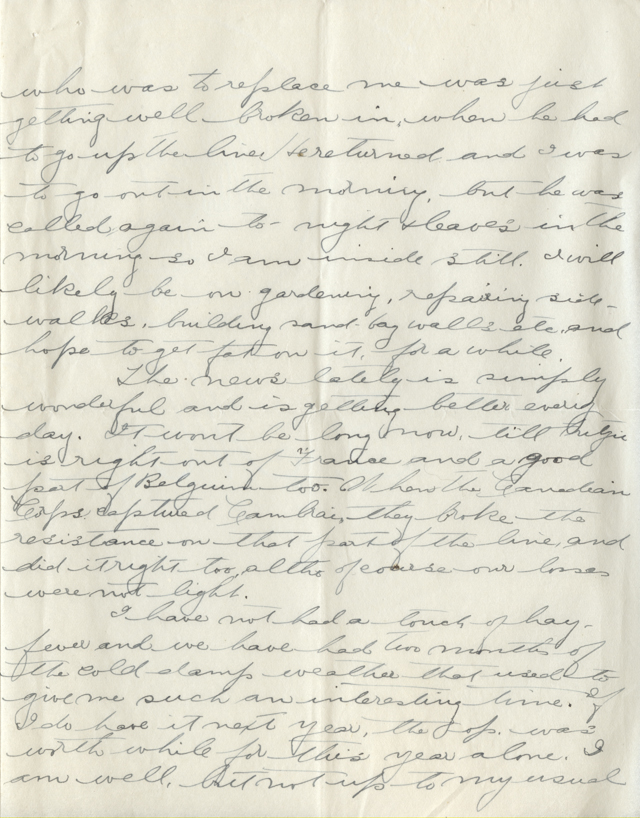 who was to replace me was just
getting well broken in, when he had
to go up the line. He returned and I was
to go out in the morning, but he was
called again to-night & leaves in the
morning so I am inside still. I will
likely be on gardening, repairing side-
walks, building sand-bag walls etc, and
hope to get fat on it, for a while.
The news lately is simply
wonderful and is getting better every
day. It wont be long now, till
is right out of France and a good
part of Belguim too. When the Canadian
Corps captured Cambrai, they broke the
resistance on that part of the line, and
did it right too, altho of course our losses
were not light.
I have not had a touch of hay-
fever and we have had two months of
the cold damp weather that used to
give me such an interesting time. If
I do have it next year, the op. was
worth while for this year alone. I
am well, but not up to my usual